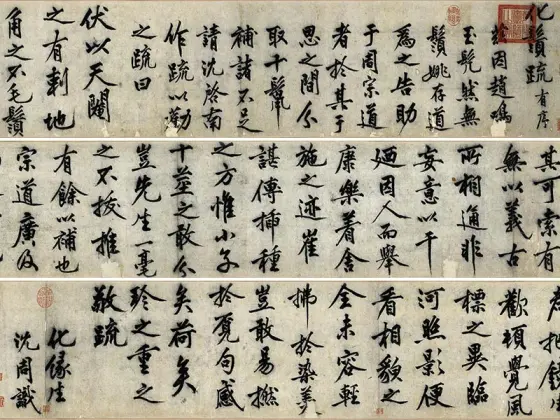 化鬚疏有序
兹因趙鳴
玉髡然無
鬚姚存道
為之告助
于周宗道
者於其于
思之間分
取十鬣
補諸不足
請沈啓南
作疏以勸
之疏曰
伏以天閹
之有刺地
角之不毛鬚
其可索有
無以義古
所相通非
妄意以干
廼因人而舉
康樂著舍
施之迹崔
諶傳插種
之方惟小子
十莖之敢分
豈先生一毫
之不拔推
有餘以補也
宗道廣及
歡頓覺風
標之異臨
河照影便
看相貌之
全未容輕
拂於染羹
豈敢易撚
於覓句感
矣荷矣
珍之重之
敬疏
化緣生
沈周識